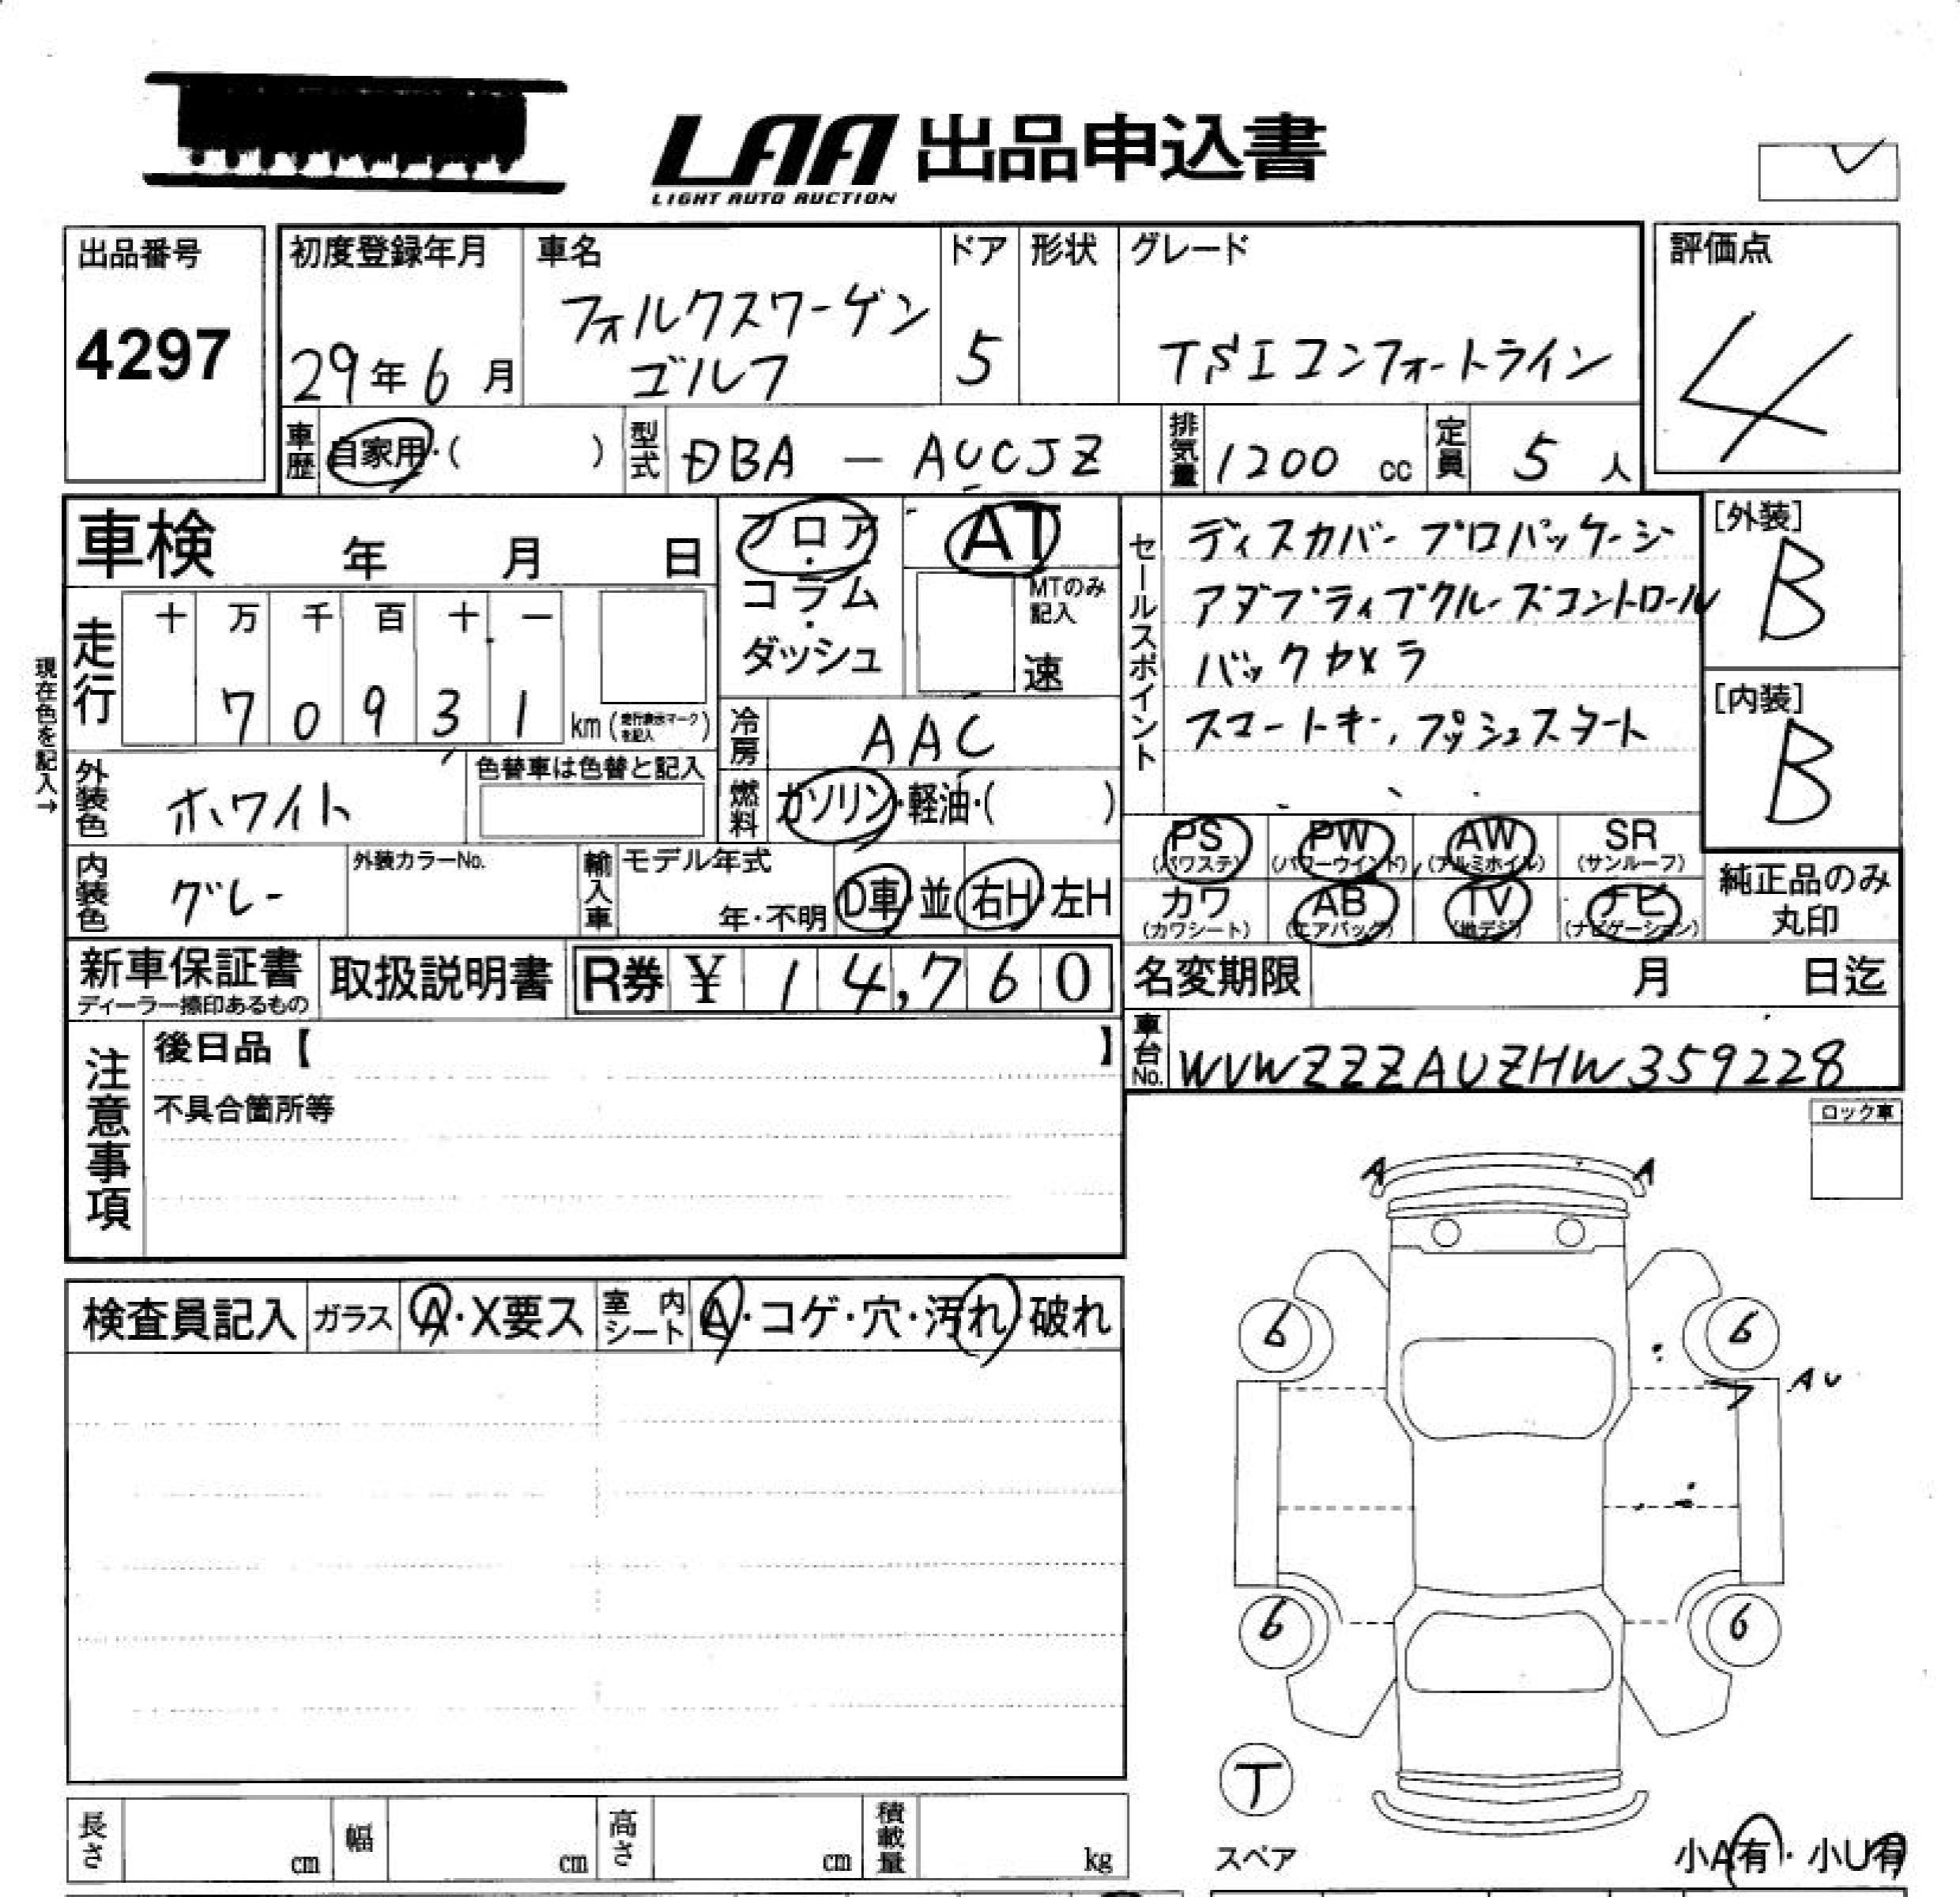 LAA 出品申込書
LIGHT AUTO AUCTION
出品番号
4297
初度登録年月
29年6月
車名
フォルクスワーゲン
ゴルフ
ドア
5
形状
グレード
TSIコンフォートライン
評価点
4
車歴
自家用・( )
型式
DBA - AUCJZ
排気量
1200 cc
定員
5人
車検 年 月 日
フロア・
コラム・
ダッシュ
AT
MTのみ
記入
速
セールスポイント
ディスカバープロパッケージ
アダプティブクルーズコントロール
バックカメラ
スマートキー,プッシュスタート
[外装]
B
[内装]
B
現在色を記入→
走行
十 万 千 百 十 一
7 0 9 3 1 km(走行表示マークを記入)
冷房
AAC
外装色
ホワイト
色替車は色替と記入
燃料
ガソリン・軽油・( )
内装色
グレー
外装カラーNo.
輸入車
モデル年式
年・不明
D車・並
右H・左H
PS
(パワステ)
PW
(パワーウインド)
AW
(アルミホイル)
SR
(サンルーフ)
カワ
(カワシート)
AB
(エアバッグ)
TV
(地デジ)
ナビ
(ナビゲーション)
純正品のみ
丸印
新車保証書
ディーラー捺印あるもの
取扱説明書
R券 ¥ 14,760
名変期限 月 日迄
車台No.
WVWZZZAUZHW359228
注意事項
後日品【 】
不具合箇所等
ロック車
A A
6 6
AU
6 6
検査員記入
ガラス
A・X要ス
室内シート
A・コゲ・穴・汚れ・破れ
T
スペア
小A有・小U有
長さ cm
幅 cm
高さ cm
積載量 kg